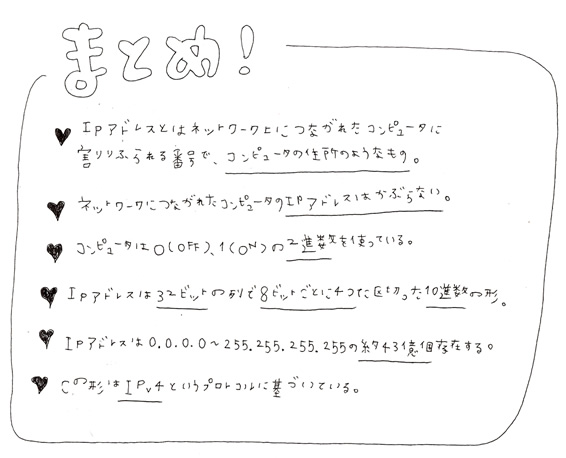 まとめ!
IPアドレスとはネットワーク上につながれたコンピュータに
割りふられる番号で、コンピュータの住所のようなもの。
ネットワークにつながれたコンピュータのIPアドレスはかぶらない。
コンピュータは0(OFF)、1(ON)の2進数を使っている。
IPアドレスは32ビットの列で8ビットごとに4つに区切った10進数の形。
IPアドレスは0.0.0.0~255.255.255.255の約43億個存在する。
この形はIPv4というプロトコルに基づいている。